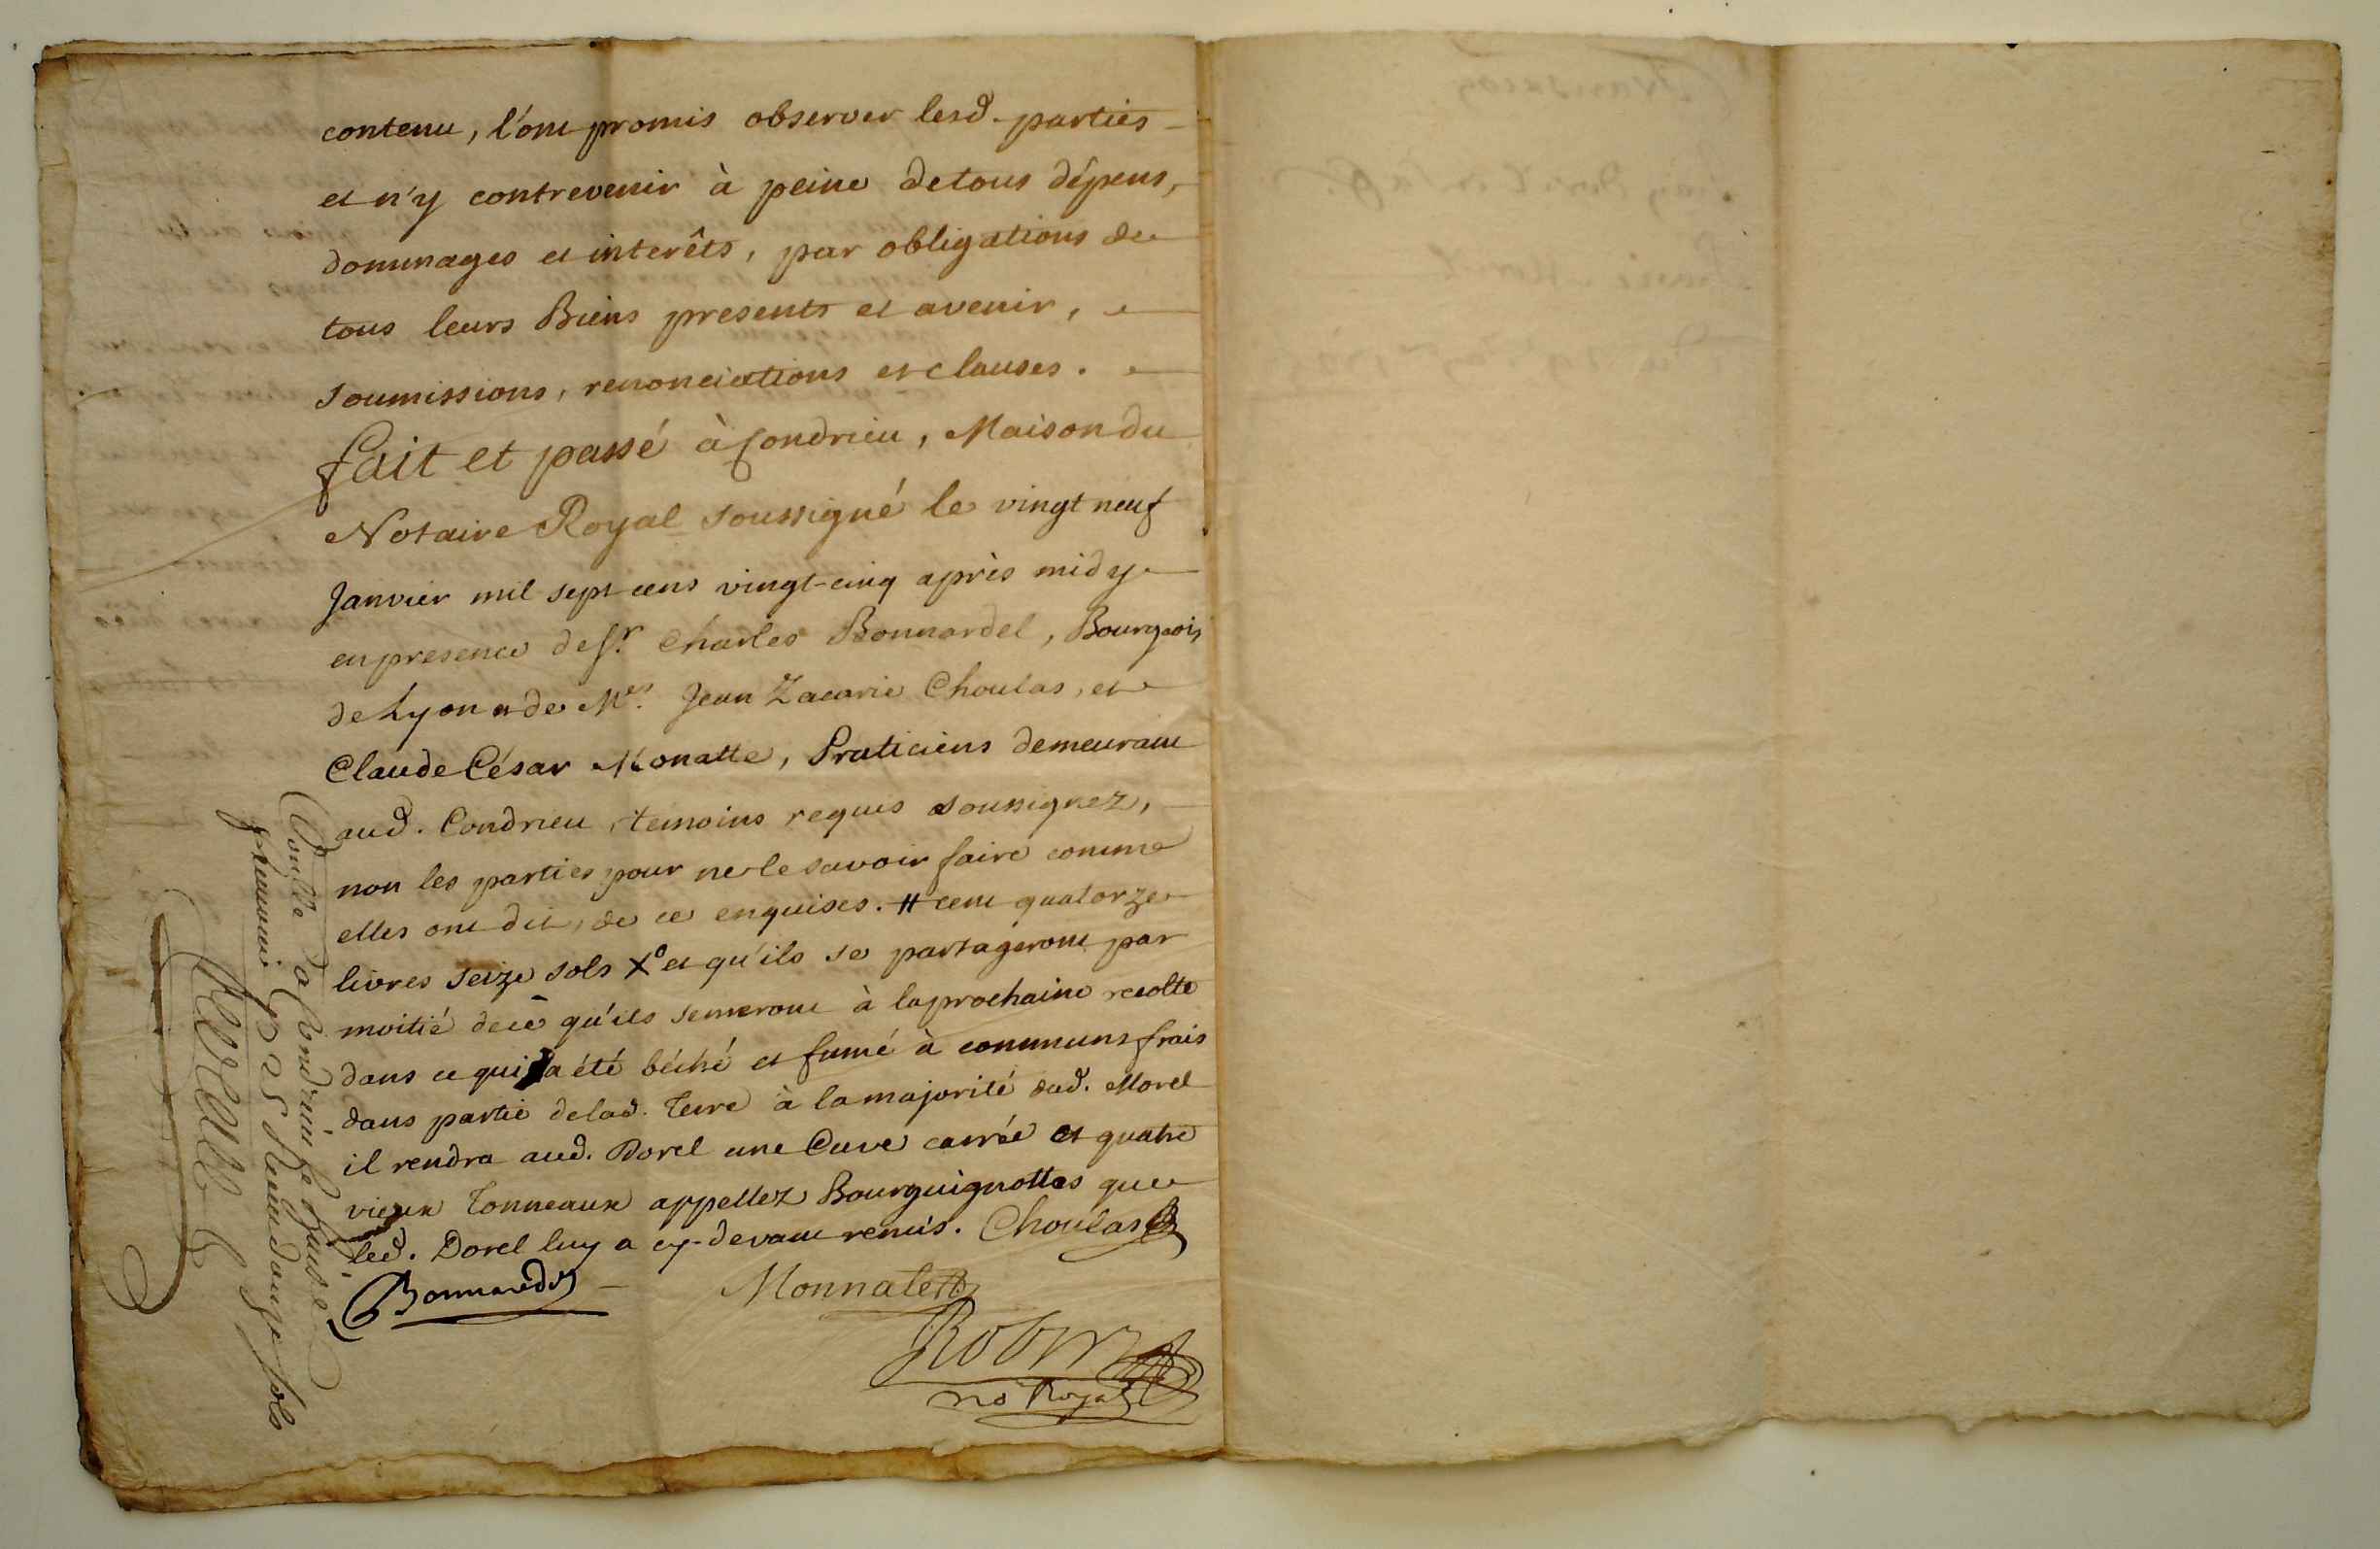 contenu, l'ont promis observer lesd. parties
et n'y contrevenir à peine de tous dépens,
dommages et interêts, par obligations de
tous leurs Biens presents et avenir,
soumissions, renonciations et clauses.
fait et passé à Condrieu, Maison du
Notaire Royal soussigné le vingt neuf
Janvier mil sept cens vingt-cinq après midy
en presence de Sr. Charles Bonnardel, Bourgeois
de Lyon et de Mes. Jean Zacarie Choulas, et
Claude César Monatte, Praticiens demeurant
aud. Condrieu, temoins requis soussignez,
non les parties pour ne le savoir faire comme
elles ont dit, de ce enquises. # cent quatorze
livres seize sols X° et qu'ils se partageront par
moitié de ce qu'ils semeront à la prochaine recolte
dans ce qui a été béché et fumé à communs frais
dans partie de lad. Terre à la majorité dud. Morel
il rendra aud. Dorel une Cuve carrée et quatre
vieux Tonneaux appellez Bourguignottes que
led. Dorel luy a cy-devant remis. Choulas
Bonnardel Monnate
Robin
no Royal
Condrieu le
sols